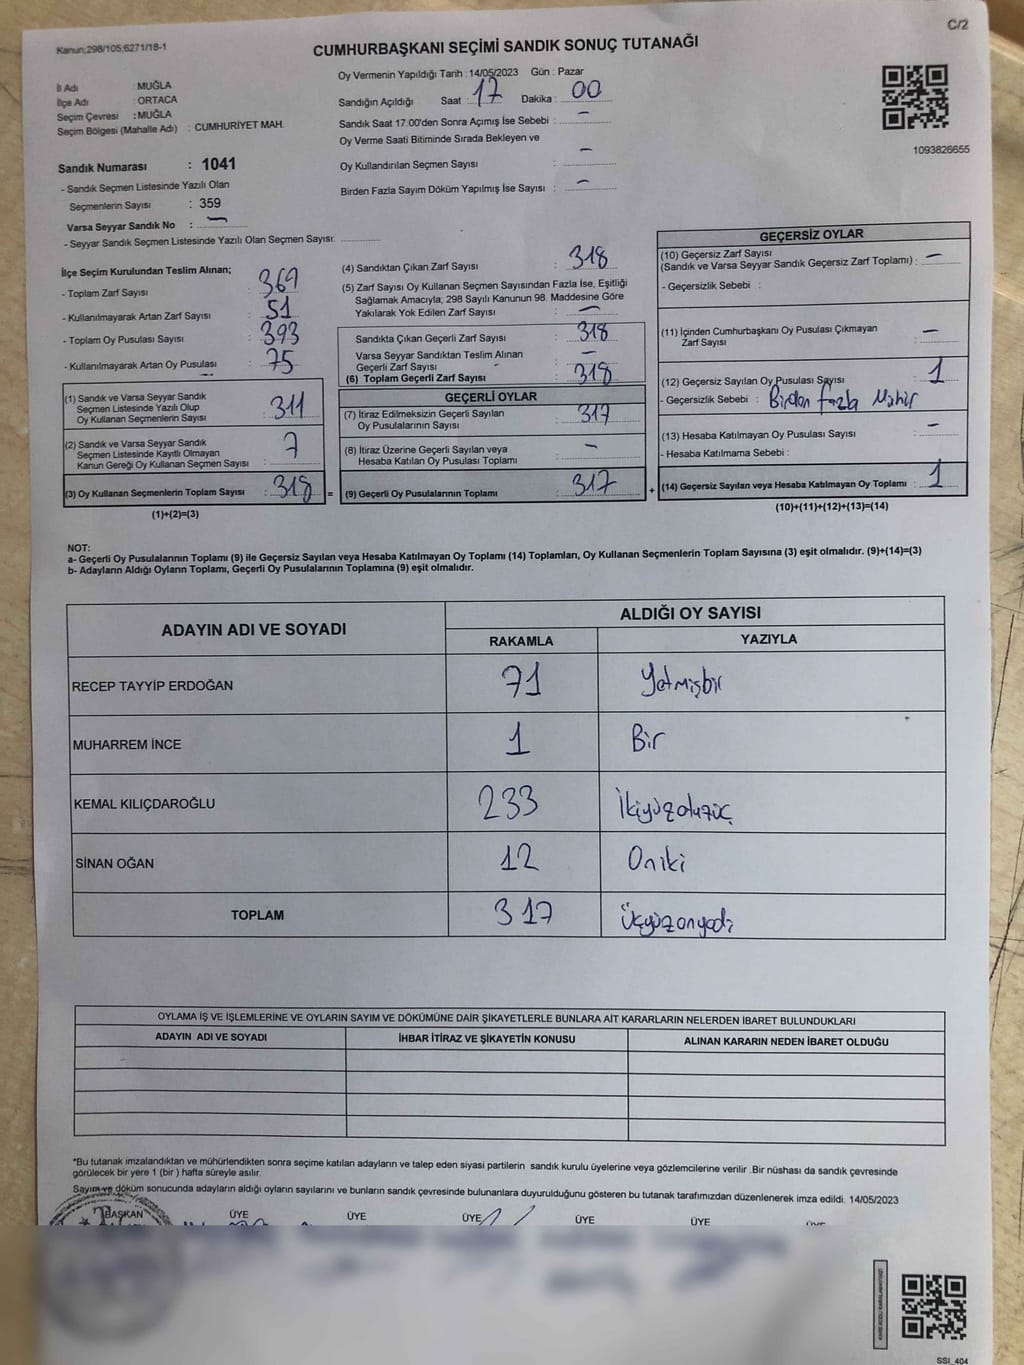 C/2
Kanun;298/105;6271/18-1
CUMHURBAŞKANI SEÇİMİ SANDIK SONUÇ TUTANAĞI
İl Adı : MUĞLA
İlçe Adı : ORTACA
Seçim Çevresi : MUĞLA
Seçim Bölgesi (Mahalle Adı) : CUMHURİYET MAH.
Sandık Numarası : 1041
- Sandık Seçmen Listesinde Yazılı Olan
Seçmenlerin Sayısı : 359
Varsa Seyyar Sandık No : —
- Seyyar Sandık Seçmen Listesinde Yazılı Olan Seçmen Sayısı: ..............
Oy Vermenin Yapıldığı Tarih : 14/05/2023 Gün : Pazar
Sandığın Açıldığı Saat : 17 Dakika : 00
Sandık Saat 17:00'den Sonra Açımış İse Sebebi : —
Oy Verme Saati Bitiminde Sırada Bekleyen ve
Oy Kullandırılan Seçmen Sayısı : —
Birden Fazla Sayım Döküm Yapılmış İse Sayısı : —
1093826655
İlçe Seçim Kurulundan Teslim Alınan;
- Toplam Zarf Sayısı : 369
- Kullanılmayarak Artan Zarf Sayısı : 51
- Toplam Oy Pusulası Sayısı : 393
- Kullanılmayarak Artan Oy Pusulası : 75
(1) Sandık ve Varsa Seyyar Sandık
Seçmen Listesinde Yazılı Olup
Oy Kullanan Seçmenlerin Sayısı : 311
(2) Sandık ve Varsa Seyyar Sandık
Seçmen Listesinde Kayıtlı Olmayan
Kanun Gereği Oy Kullanan Seçmen Sayısı : 7
(3) Oy Kullanan Seçmenlerin Toplam Sayısı : 318 =
(1)+(2)=(3)
(4) Sandıktan Çıkan Zarf Sayısı : 318
(5) Zarf Sayısı Oy Kullanan Seçmen Sayısından Fazla İse, Eşitliği
Sağlamak Amacıyla; 298 Sayılı Kanunun 98. Maddesine Göre
Yakılarak Yok Edilen Zarf Sayısı : —
Sandıkta Çıkan Geçerli Zarf Sayısı : 318
Varsa Seyyar Sandıktan Teslim Alınan
Geçerli Zarf Sayısı : —
(6) Toplam Geçerli Zarf Sayısı : 318
GEÇERLİ OYLAR
(7) İtiraz Edilmeksizin Geçerli Sayılan
Oy Pusulalarının Sayısı : 317
(8) İtiraz Üzerine Geçerli Sayılan veya
Hesaba Katılan Oy Pusulası Toplamı : —
(9) Geçerli Oy Pusulalarının Toplamı : 317 +
GEÇERSİZ OYLAR
(10) Geçersiz Zarf Sayısı
(Sandık ve Varsa Seyyar Sandık Geçersiz Zarf Toplamı) : —
- Geçersizlik Sebebi :
(11) İçinden Cumhurbaşkanı Oy Pusulası Çıkmayan
Zarf Sayısı : —
(12) Geçersiz Sayılan Oy Pusulası Sayısı : 1
- Geçersizlik Sebebi : Birden fazla Mühür
(13) Hesaba Katılmayan Oy Pusulası Sayısı : —
- Hesaba Katılmama Sebebi :
(14) Geçersiz Sayılan veya Hesaba Katılmayan Oy Toplamı : 1
(10)+(11)+(12)+(13)=(14)
NOT:
a- Geçerli Oy Pusulalarının Toplamı (9) ile Geçersiz Sayılan veya Hesaba Katılmayan Oy Toplamı (14) Toplamları, Oy Kullanan Seçmenlerin Toplam Sayısına (3) eşit olmalıdır. (9)+(14)=(3)
b- Adayların Aldığı Oyların Toplamı, Geçerli Oy Pusulalarının Toplamına (9) eşit olmalıdır.
ADAYIN ADI VE SOYADI ALDIĞI OY SAYISI
RAKAMLA YAZIYLA
RECEP TAYYİP ERDOĞAN 71 Yetmişbir
MUHARREM İNCE 1 Bir
KEMAL KILIÇDAROĞLU 233 İkiyüzotuzüç
SİNAN OĞAN 12 Oniki
TOPLAM 317 Üçyüzonyedi
OYLAMA İŞ VE İŞLEMLERİNE VE OYLARIN SAYIM VE DÖKÜMÜNE DAİR ŞİKAYETLERLE BUNLARA AİT KARARLARIN NELERDEN İBARET BULUNDUKLARI
ADAYIN ADI VE SOYADI İHBAR İTİRAZ VE ŞİKAYETİN KONUSU ALINAN KARARIN NEDEN İBARET OLDUĞU
*Bu tutanak imzalandıktan ve mühürlendikten sonra seçime katılan adayların ve talep eden siyasi partilerin sandık kurulu üyelerine veya gözlemcilerine verilir .Bir nüshası da sandık çevresinde
görülecek bir yere 1 (bir ) hafta süreyle asılır.
Sayım ve döküm sonucunda adayların aldığı oyların sayılarını ve bunların sandık çevresinde bulunanlara duyurulduğunu gösteren bu tutanak tarafımızdan düzenlenerek imza edildi. 14/05/2023
BAŞKAN ÜYE ÜYE ÜYE ÜYE ÜYE ÜYE
SSI_404